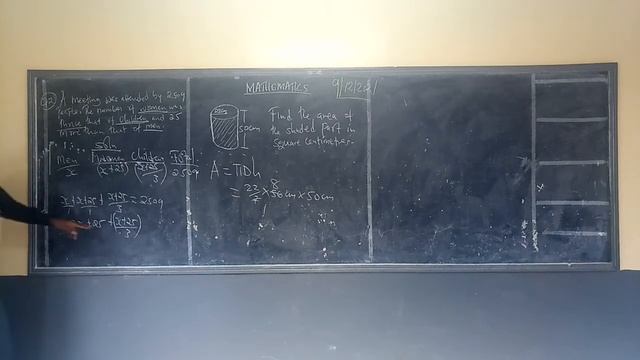 MATHEMATICS
9/12/22
A meeting was attended by 2509
the number of women was
thrice that of children and 25
more than that of men.
Soln.
Men Women Children Total
x (x+25) (x+25/3) 2509
x + x+25 + x+25/3 = 2509
+25 + (x+25/3)
50cm
Find the area of
the shaded part in
square centimetres.
A = πDh
= 22/7 × 56cm × 50cm
8